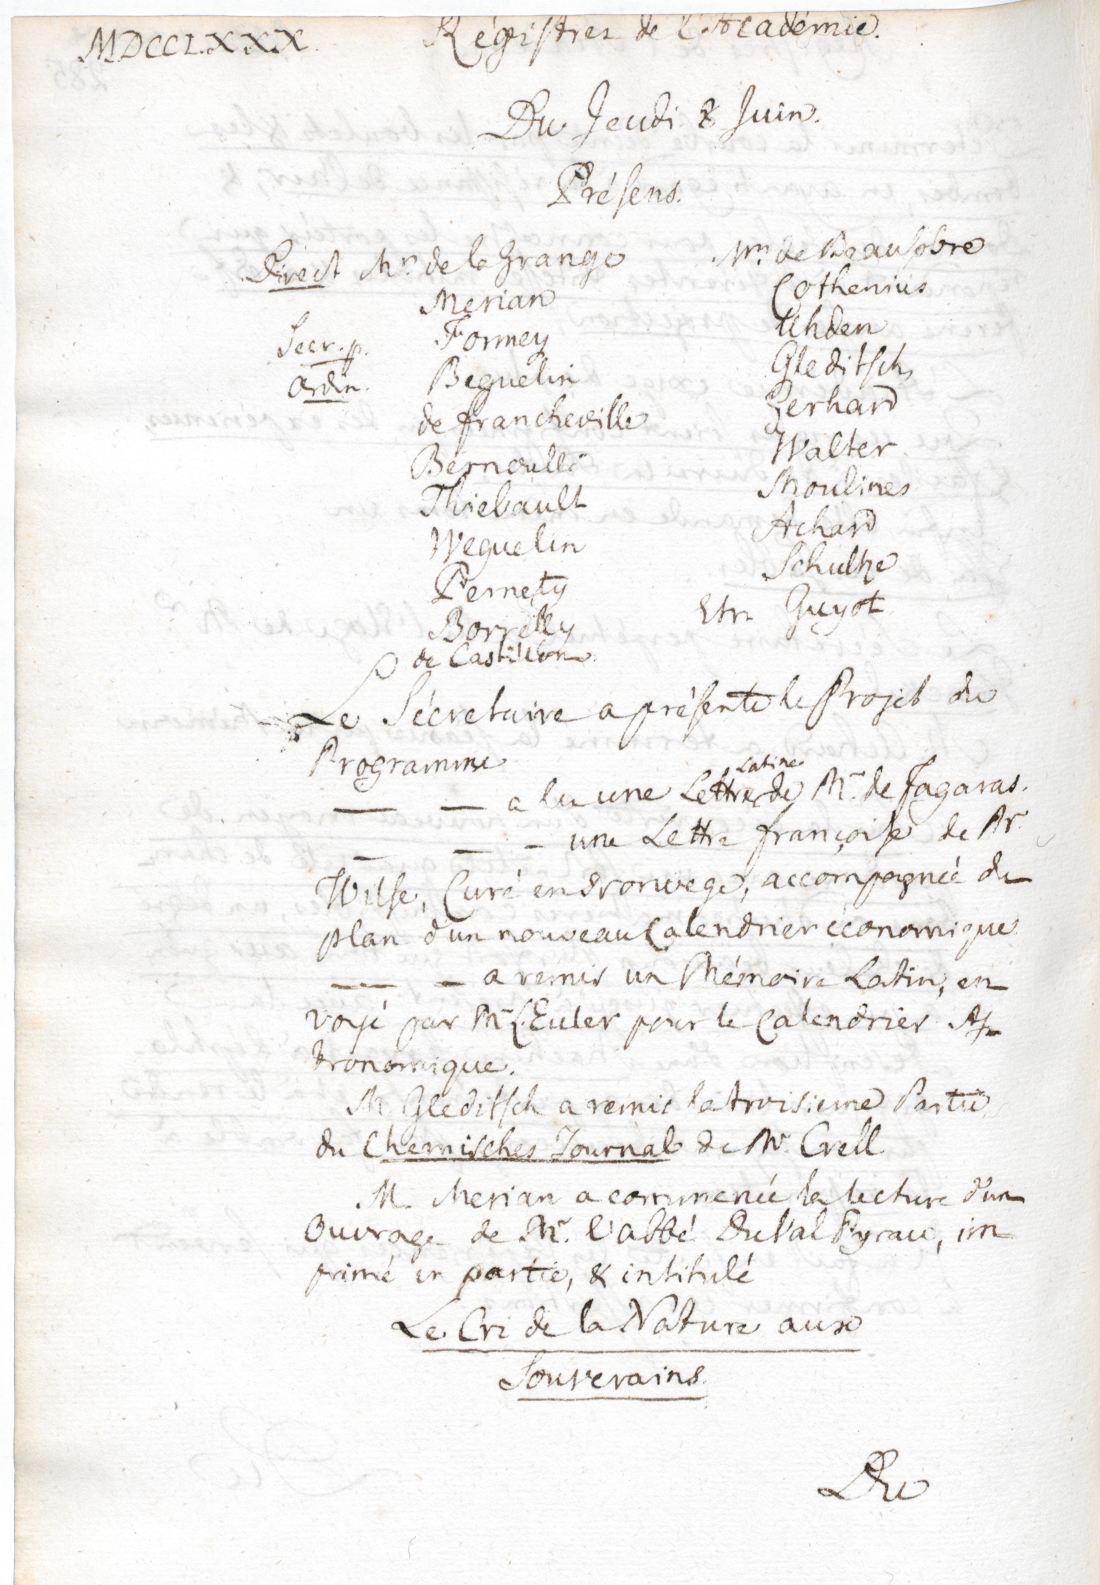 MDCCLXXX. Régistres de l'Académie.
Du Jeudi 8 Juin.
Présens.
Direct Mr. de la Grange
Merian
Secr. p. Formey
Ordin. Beguelin
de Francheville
Bernoulli
Thiebault
Weguelin
Pernety
Borrelly
de Castillon.
Mrs. de Beausobre
Cothenius
Uhden
Gleditsch
Gerhard
Walter
Moulines
Achard
Schultze
Etr. Guyot
Le Sécretaire a présenté le Projet du
Programme
— — a lu une Lettre Latine de Mr. de Fagaras.
— — — une Lettre françoise de Mr.
Wilse, Curé en Norwege, accompagnée du
plan d'un nouveau Calendrier économique
— — — a remis un Mémoire Latin, en
voyé par Mr. L. Euler pour le Calendrier As-
tronomique.
M. Gleditsch a remis la troisieme Partie
du Chemisches Journal de Mr. Crell
M. Merian a commencé la lecture d'un
Ouvrage de Mr. l'abbé Duval Pyrau, im
primé en partie, & intitulé
Le Cri de la Nature aux
Souverains.
Du